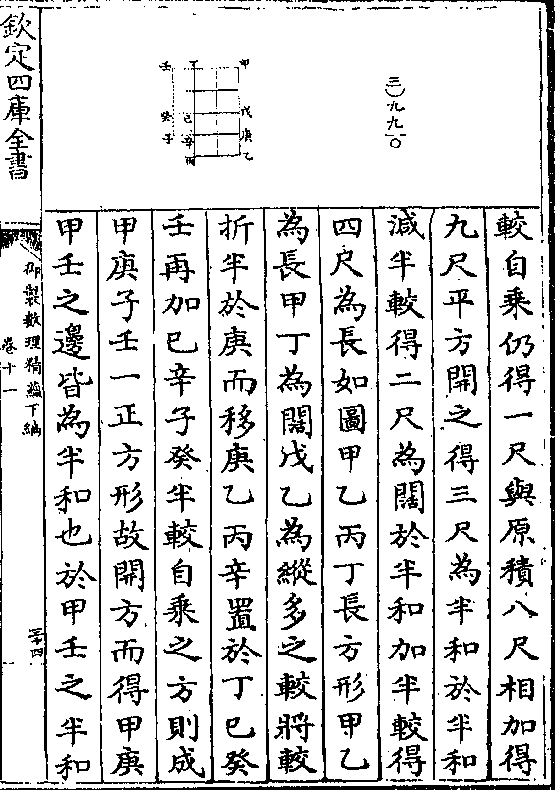 欽定四庫全書
三
九九
一〇
甲
丁
壬
戊
己
癸
庚
辛
子
乙
丙
較自乘仍得一尺與原積八尺相加得
九尺平方開之得三尺為半和於半和
減半較得二尺為闊於半和加半較得
四尺為長如圖甲乙丙丁長方形甲乙
為長甲丁為闊戊乙為縱多之較將較
折半於庚而移庚乙丙辛置於丁己癸
壬再加己辛子癸半較自乘之方則成
甲庚子壬一正方形故開方而得甲庚
甲壬之邊皆為半和也於甲壬之半和
御製數理精蘊下編
卷十一
三十四